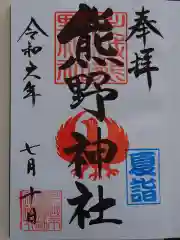 奉拝
熊野神社
夏詣
令和六年
七月十日